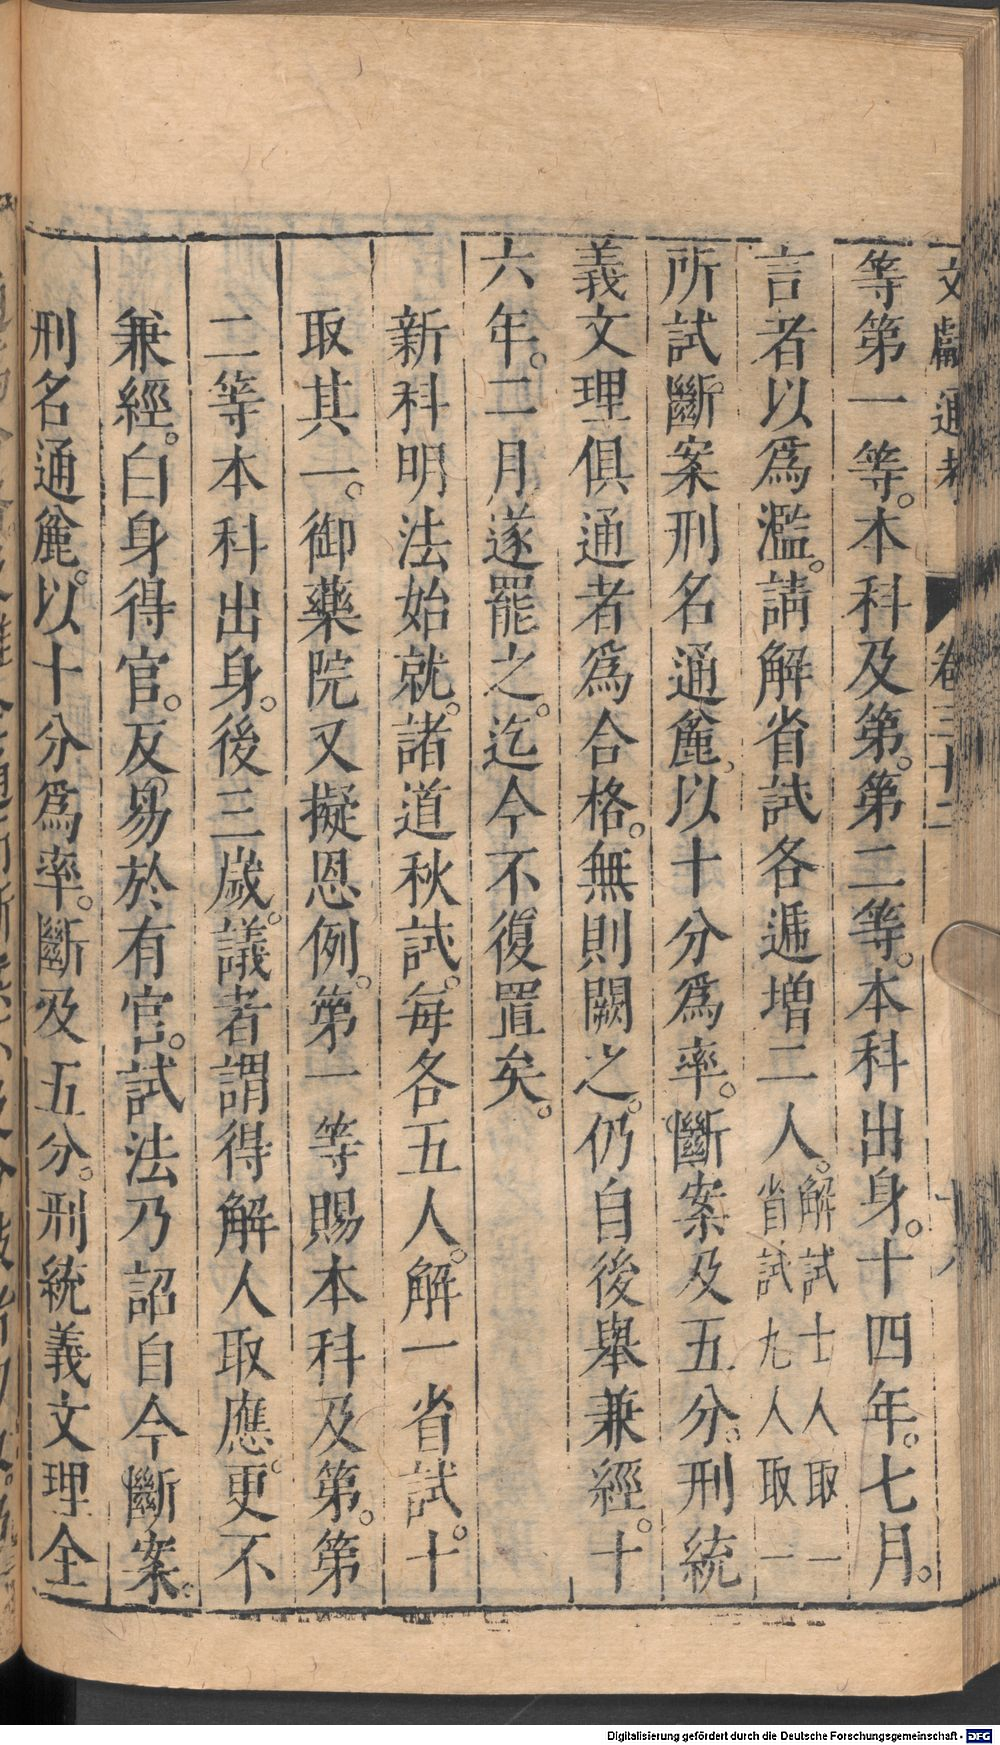 文獻通考 卷三十二 十八
等第一等。本科及第。第二等。本科出身。十四年。七月。
言者以爲濫。請解省試各遞增二人。解試士人取一省試九人取一
所試斷案刑名通麄。以十分爲率。斷案及五分。刑統
義文理俱通者爲合格。無則闕之。仍自後舉兼經。十
六年。二月遂罷之。迄今不復置矣。
新科明法始就。諸道秋試。每各五人。解一省試。十
取其一。御藥院又擬恩例。第一等賜本科及第。第
二等本科出身。後三歲。議者謂得解人取應。更不
兼經。白身得官。反易於有官。試法乃詔自今斷案。
刑名通麄。以十分爲率。斷及五分。刑統義文理全
Digitalisierung gefördert durch die Deutsche Forschungsgemeinschaft - DFG